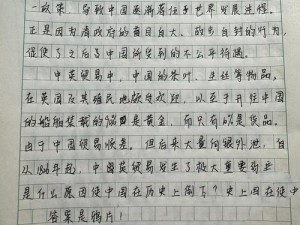 一政策，导致中国逐渐落伍于世界发展进程。
正是因为腐败政府的盲目自大、故步自封的行为，
促使了之后了中国所受到的不公平待遇。
中英贸易中，中国的茶叶、丝等物品，
在英国及其殖民地颇受欢迎，以至于开往中国
的船舶装载的90%是黄金，而只有10%是货品。
由于中国贸易顺差。但后来大量白银外泄，自
从186年起，中国英贸易发生了极大重要
是什么原因使中国在历史上倒了？史上因在使中
答案是鸦片！